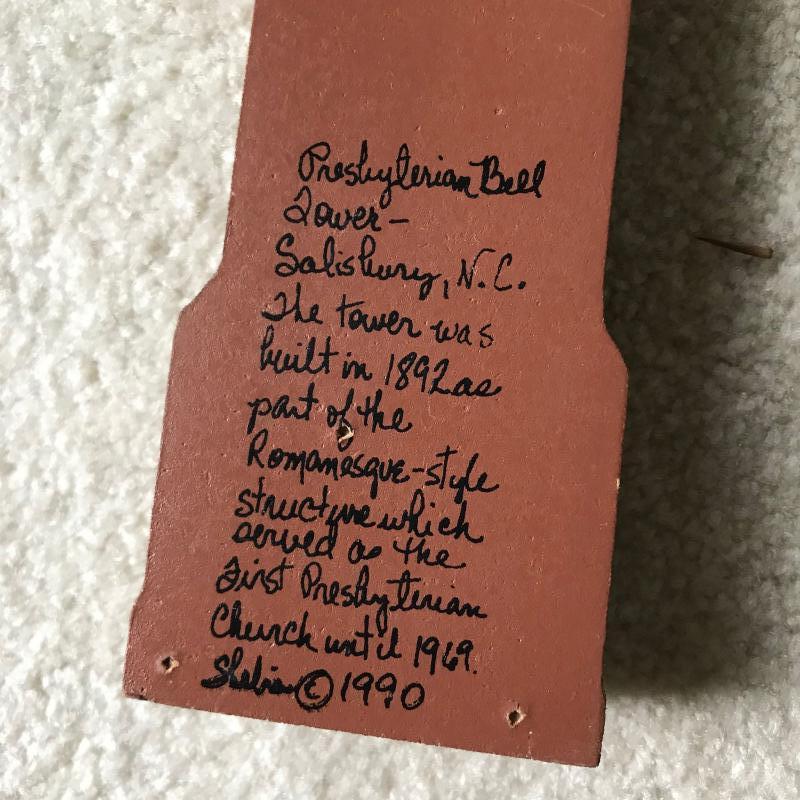 Presbyterian Bell
Tower-
Salisbury, N.C.
The tower was
built in 1892 as
part of the
Romanesque-style
structure which
served as the
First Presbyterian
Church until 1969.
Shelia © 1990